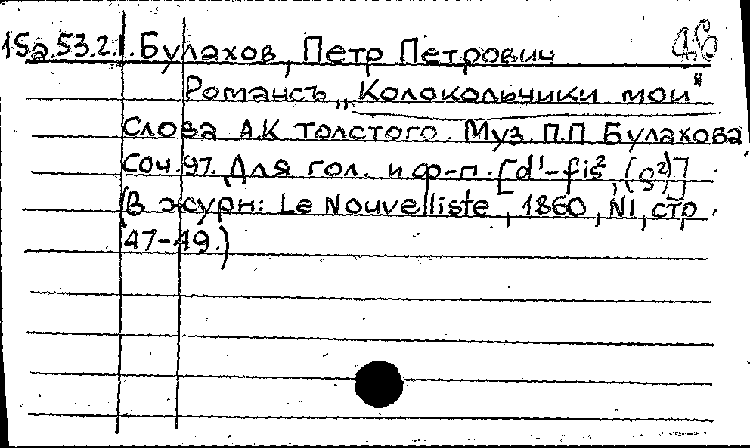 15а.53.2.1. Булахов, Петр Петрович
Романсъ „Колокольчики мои"
Слова А.К Толстого. Муз. П.П Булахова
Соч. 97. Для гол. и ф-п. [d¹-fis², (g²)]
(В журн: Le Nouvelliste, 1860, N1, стр.
47-49.)